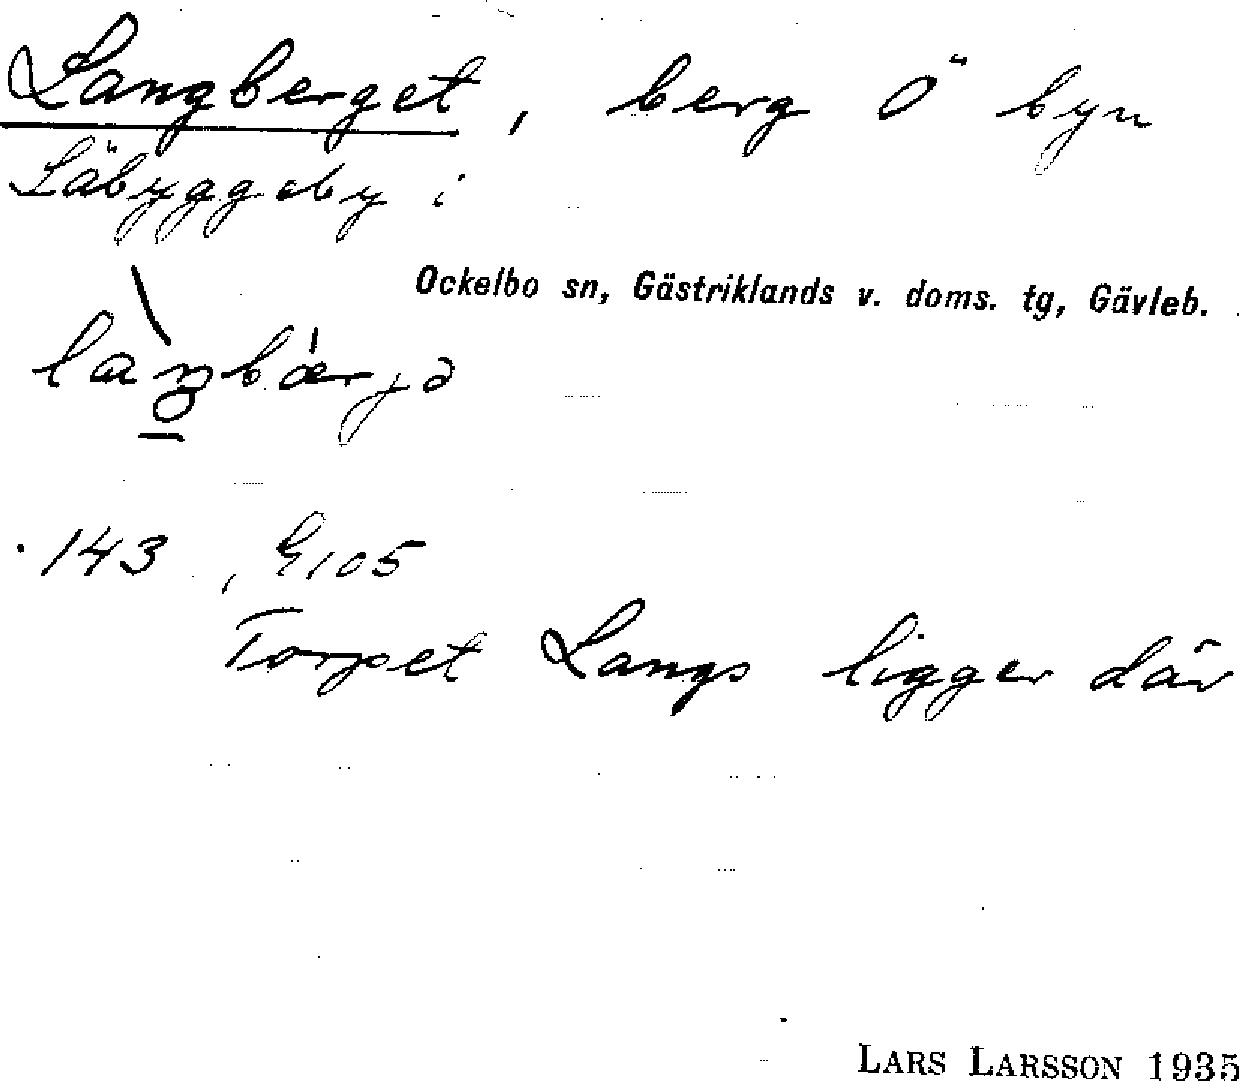 Langberget, berg Ö byn
Säbyggeby i
Ockelbo sn, Gästriklands v. doms. tg, Gävleb.
143, G105
Torpet Langs ligger där
LARS LARSSON 1935